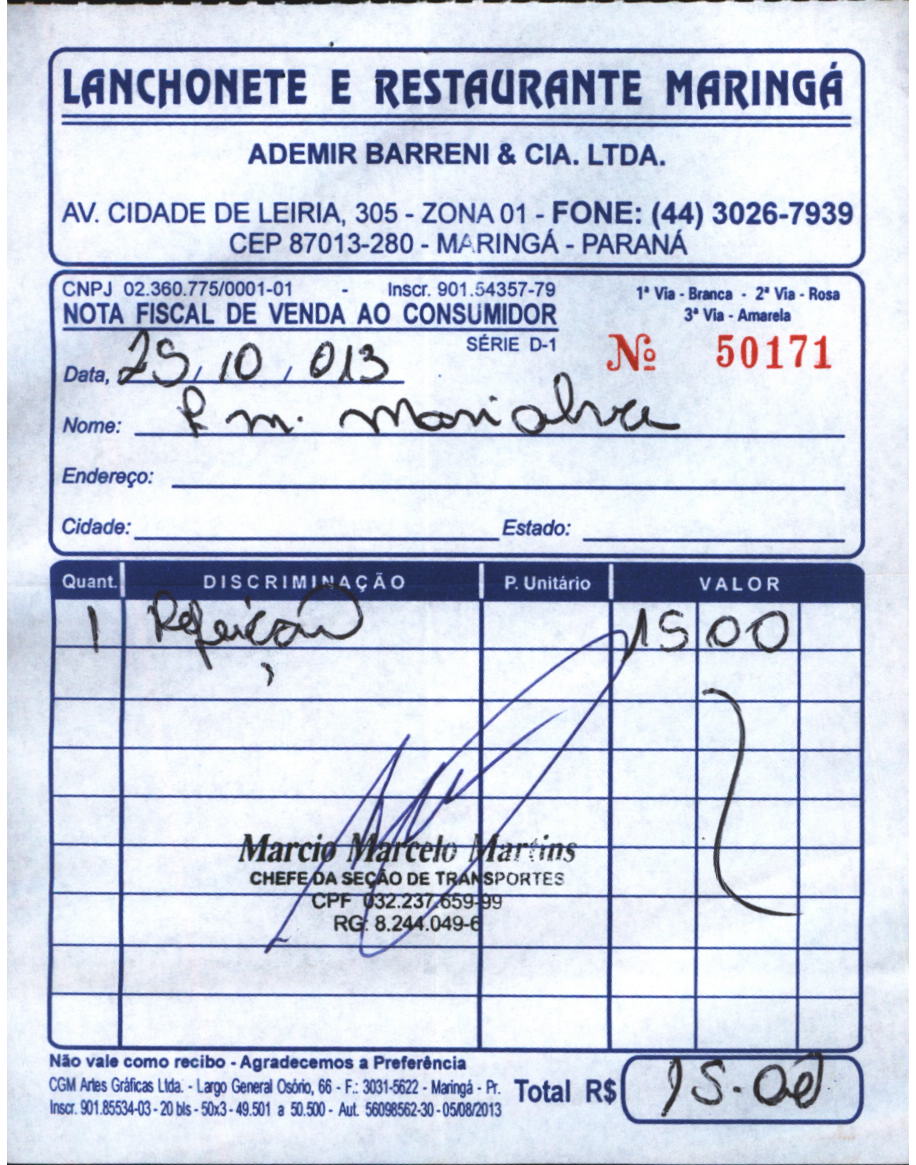 LANCHONETE E RESTAURANTE MARINGÁ
ADEMIR BARRENI & CIA. LTDA.
AV. CIDADE DE LEIRIA, 305 - ZONA 01 - FONE: (44) 3026-7939
CEP 87013-280 - MARINGÁ - PARANÁ
CNPJ 02.360.775/0001-01 - Inscr. 901.54357-79
1ª Via - Branca - 2ª Via - Rosa
3ª Via - Amarela
NOTA FISCAL DE VENDA AO CONSUMIDOR
SÉRIE D-1
Nº 50171
Data, 25, 10, 013
Nome: P m. Marialva
Endereço:
Cidade: Estado:
Quant. DISCRIMINAÇÃO P. Unitário VALOR
1 Refeição 15 00
Marcio Marcelo Martins
CHEFE DA SEÇÃO DE TRANSPORTES
CPF 032.237.659-99
RG: 8.244.049-6
Não vale como recibo - Agradecemos a Preferência
CGM Artes Gráficas Ltda. - Largo General Osório, 66 - F.: 3031-5622 - Maringá - Pr.
Inscr. 901.85534-03 - 20 bls - 50x3 - 49.501 a 50.500 - Aut. 56098562-30 - 05/08/2013
Total R$ 15.00